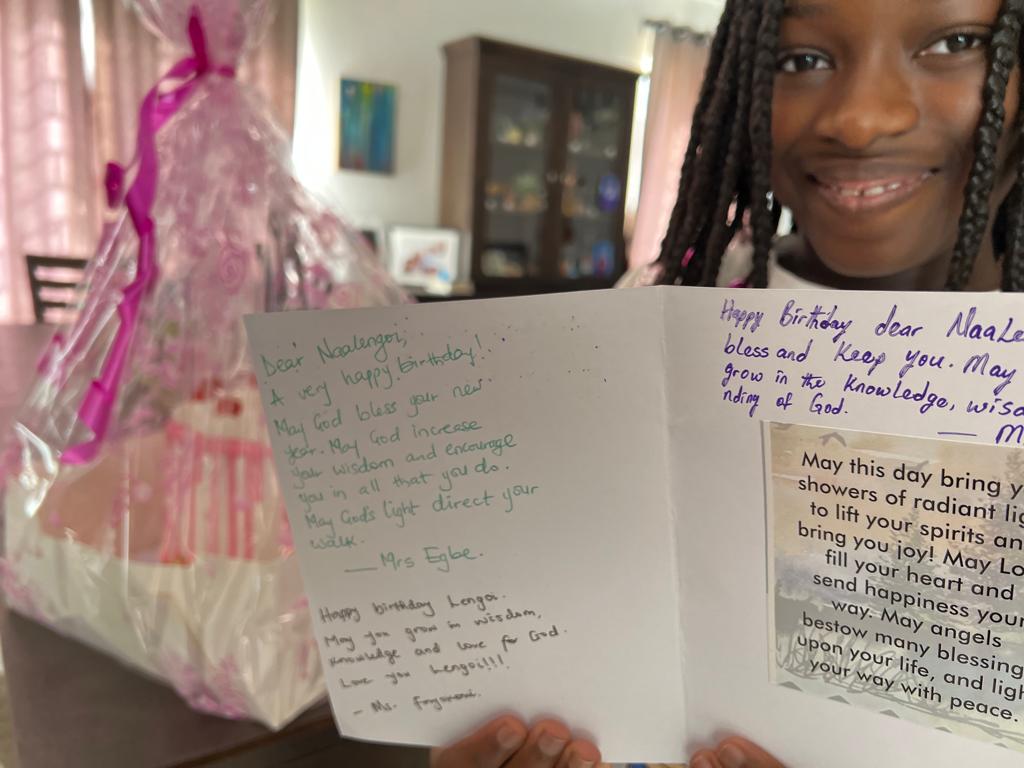 Dear Naalengoi,
A very happy birthday!
May God bless your new
year. May God increase
your wisdom and encourage
you in all that you do.
May God's light direct your
walk.
— Mrs Egbe.
Happy birthday Lengoi.
May you grow in wisdom,
knowledge and love for God.
Love you Lengoi!!!
- Ms.
Happy Birthday dear NaaLe
bless and Keep you. May
grow in the knowledge, wisd
nding of God.
— M
May this day bring y
showers of radiant lig
to lift your spirits an
bring you joy! May Lo
fill your heart and
send happiness your
way. May angels
bestow many blessing
upon your life, and ligh
your way with peace.